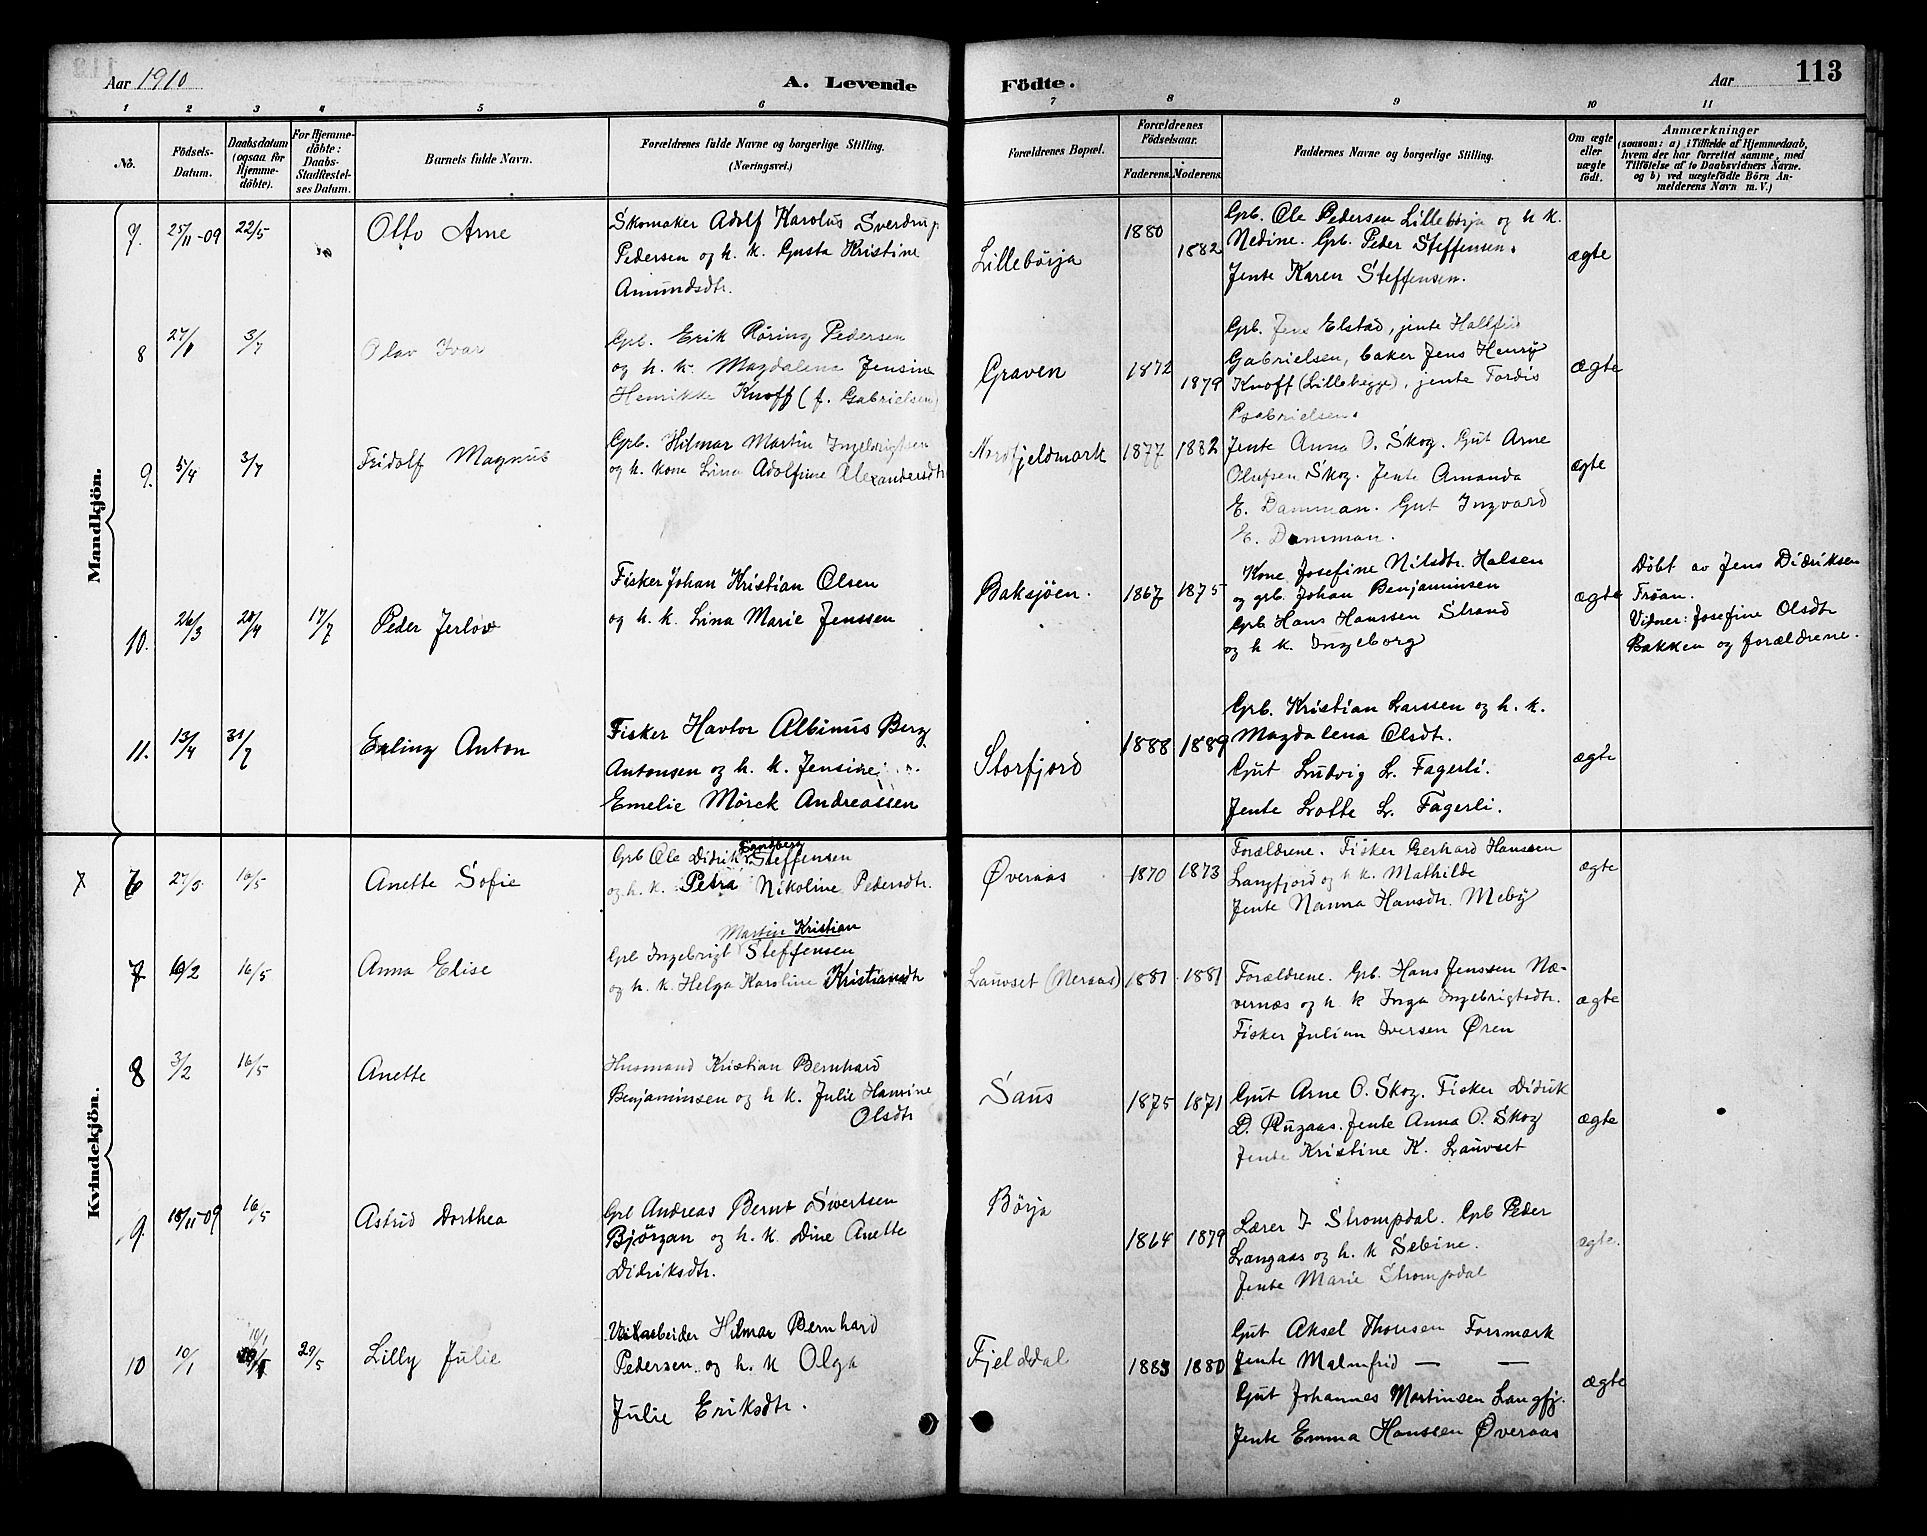 Aar 1910
A. Levende
Födte.
Aar
113
1
2
3
4
5
6
7
8
9
10
11
No.
Födsels-
Datum.
Daabsdatum
(ogsaa for
Hjemme-
döbte).
For Hjemme-
döbte:
Daabs-
Stadfæstel-
ses Datum.
Barnets fulde Navn.
Forældrenes fulde Navne og borgerlige Stilling.
(Næringsvei.)
Forældrenes Bopæl.
Forældrenes
Födselsaar.
Faderens.
Moderens.
Faddernes Navne og borgerlige Stilling.
Om ægte
eller
uægte
födt.
Anmærkninger
(saasom: a) i Tilfælde af Hjemmedaab,
hvem der har forrettet samme, med
Tilföielse af to Daabsvidners Navne.
og b) ved uægtefödte Börn An-
melderens Navn m. V.)
Mandkjön.
7. 25/11-09 22/5 Otto Arne
Skomaker Adolf Karolus Sverdrup
Pedersen og h. k. Gusta Kristine
Amundsdtr.
Lillebörja 1880 1882
Grb. Ole Pedersen Lillebörja og h k.
Nedine. Grb. Peder Steffensen.
Jente Karen Steffensen.
ægte
8 3/7 Olav Ivar
Gpb. Erik Röring Pedersen
og h. k. Magdalena Jensine
Henrikke Knoff (f. Gabrielsen)
Graven 1872 1879
Grb. Jens Elstad, jente Hallfrid
Gabrielsen, baker Jens Henry
Knoff (Lillebegge), jente Tordis
Gabrielsen.
ægte
9. 5/4 3/7 Fridolf Magnus
Grb. Hilmar Martin Ingebrigtsen
og h. kone Lina Adolfine Alexandersdtr
Nordfjeldmark 1877 1882
Jente Anna O. Skog. Gut Arne
Olufsen Skog. Jente Amanda
E. Damman. Gut Ingvard
E. Damman.
ægte
10. 26/3 20/4 17/7 Peder Jerlov
Fisker Johan Kristian Olsen
og h. k. Lina Marie Jenssen
Baksjöen. 1867 1875
Kone Josefine Nilsdtr. Halsen
og grb. Johan Benjaminsen
Grb Hans Hanssen Strand
og h k. Ingeborg
ægte
Döbt av Jens Didriksen
Fröan.
Vidner: Josefine Olsdtr
Bakken og forældrene.
11. 13/4 31/7 Erling Anton
Fisker Havtor Albinus Berg
Antonsen og h. k. Jensine
Emelie Mörck Andreassen
Storfjord 1888 1889
Grb. Kristian Larssen og h. k.
Magdalena Olsdtr.
Gut Ludvig L. Fagerli.
Jente Lotte L. Fagerli.
ægte
Kvindekjön.
7 6 16/5 Anette Sofie
Sandberg
Grb Ole Didrik Steffensen
og h. k. Petra Nikoline Pedersdtr.
Överaas 1870 1873
Forældrene. Fisker Gerhard Hanssen
Langfjord og h k. Mathilde
Jente Nanna Hansdtr. Meby
ægte
7 16/5 Anna Elise
Martin Kristian
Grb Ingebrigt Steffensen
og h. k. Helga Karoline Kristiansdtr
Lauvset (Neraas) 1881 1881
Forældrene. Grb. Hans Jenssen Næ-
vernæs og h k Inga Ingebrigtsdtr.
Fisker Julian Iversen Ören
ægte
8 3/2 16/5 Anette
Husmand Kristian Bernhard
Benjaminsen og h k. Julie Hanrine
Olsdtr
Saus 1875 1871
Gut Arne O. Skog. Fisker Didrik
D. Rugaas. Jente Anna O. Skog
Jente Kristine K. Lauvset
ægte
9. 18/11-09 16/5 Astrid Dorthea
Grb Andreas Bernt Sivertsen
Björgan og h. k. Dine Anette
Didriksdtr.
Börja 1864 1879
Lærer I Strompdal. Grb Peder
Langaas og h. k Sebine.
Jente Marie Strompdal
ægte.
10 10/1 10/1 29/5 Lilly Julie
Veiarbeider Hilmar Bernhard
Pedersen og h. k Olga
Julie Eriksdtr.
Fjelddal 1883 1880
Gut Aksel Thoresen Forsmark
Jente Malmfrid — —
Gut Johannes Martinsen Langfj.
Jente Emma Hanssen Överaas
ægte